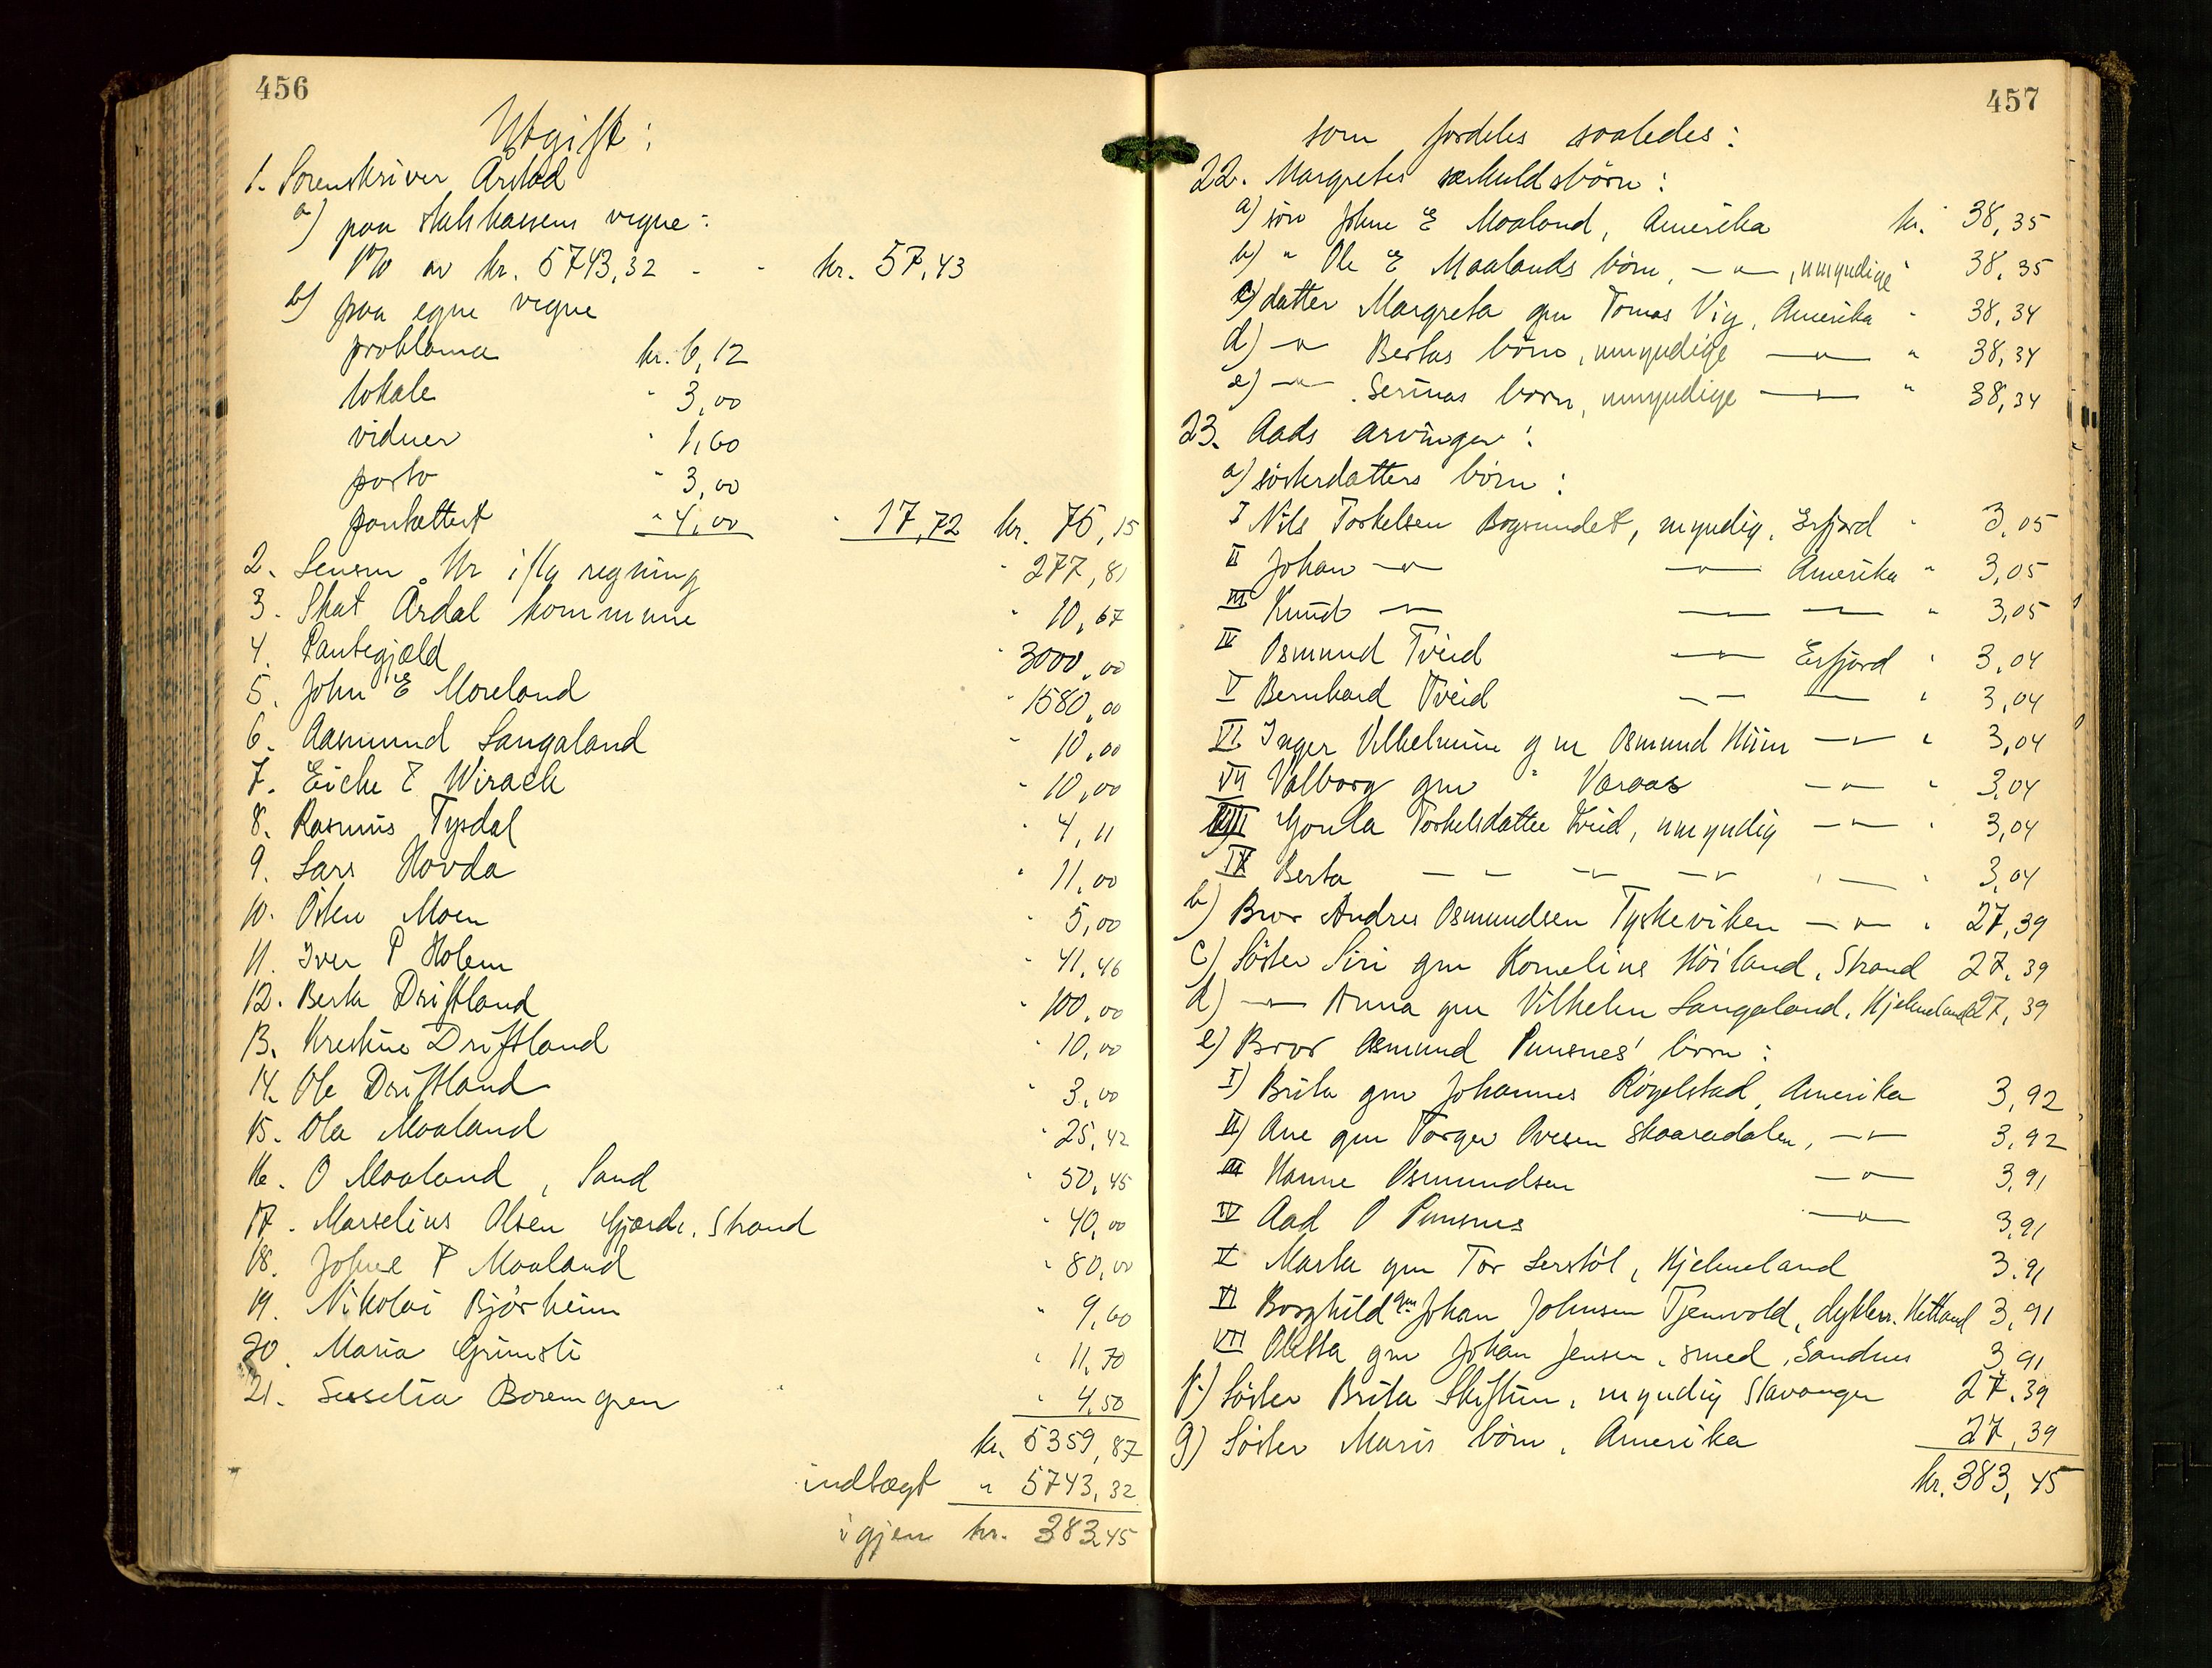 456
Utgift:
1. Sorenskriver Årstad
a) paa statskassens vegne:
1% av kr. 5743,32 - - kr. 57,43
b) paa egne vegne
proklama kr. 6,12
lokale " 3,00
vidner " 1,60
porto " 3,00
panteattest " 4,00 " 17,72 kr. 75,15
2. Lensm. Hr i flg regning " 277,81
3. Skat Årdal kommune " 10,67
4. Pantegjæld " 3000,00
5. John E Moreland " 1580,00
6. Aasmund Langaland " 10,00
7. Eiche & Wirach " 10,00
8. Rasmus Tysdal " 4,11
9. Lars Hovda " 11,00
10. Østen Moen " 5,00
11. Iver P Holem " 41,46
12. Berta Driftland " 100,00
13. Krestine Driftland " 10,00
14. Ole Driftland " 3,00
15. Ola Maaland " 25,42
16. O Maaland, Sand " 50,45
17. Marselius Olsen Gjærde, Strand " 40,00
18. Johne P Maaland " 80,00
19. Nikolai Bjørheim " 9,60
20. Maria Grimsli " 11,70
21. Sesselia Boremgren " 4,50
kr. 5359,87
indtægt " 5743,32
igjen kr. 383,45
457
som fordeles saaledes:
22. Margretes særkuldsbørn:
a) søn Johne E Maaland, Amerika kr. 38,35
b) " Ole E Maalands børn, —"—, umyndige " 38,35
c) datter Margreta gm Tomas Vig, Amerika " 38,34
d) —"— Bertas børn, umyndige —"— " 38,34
e) —"— Serinas børn, umyndige —"— " 38,34
23. Aads arvinger:
a) søsterdatters børn:
I Nils Torkelsen Bogsundet, myndig, Erfjord " 3,05
II Johan —"— —"— Amerika " 3,05
III Knud —"— —"— —"— " 3,05
IV Osmund Tveid —"— Erfjord " 3,04
V Bernhard Tveid —"— —"— " 3,04
VI Inger Vilhelmine gm Osmund Hiim —"— " 3,04
VII Valborg gm " Varaas —"— " 3,04
VIII Gonla Torkelsdatter Tveid, umyndig —"— " 3,04
IX Berta —"— —"— —"— " —"— " 3,04
b) Bror Andres Osmundsen Tyskeviken —"— " 27,39
c) Søster Siri gm Kornelius Høiland, Strand 27,39
d) —"— Anna gm Vilhelm Langaland, Hjelmeland 27,39
e) Bror Asmund Punsnes' børn:
I) Brita gm Johannes Røgelstad, Amerika 3,92
II) Ane gm Torger Ovesen Skaaradalen, —"— 3,92
III Hanne Osmundsen —"— 3,91
IV Aad O Punsnes —"— 3,91
V Marta gm Tor Serstøl, Hjelmeland 3,91
VI Borghild gm Johan Johnsen Tjensvold, Hetland 3,91
VII Oletta gm Johan Jensen, smed, Sandnes 3,91
f) Søster Brita Skiftun, myndig Stavanger 27,39
g) Søster Maris børn, Amerika 27,39
kr. 383,45